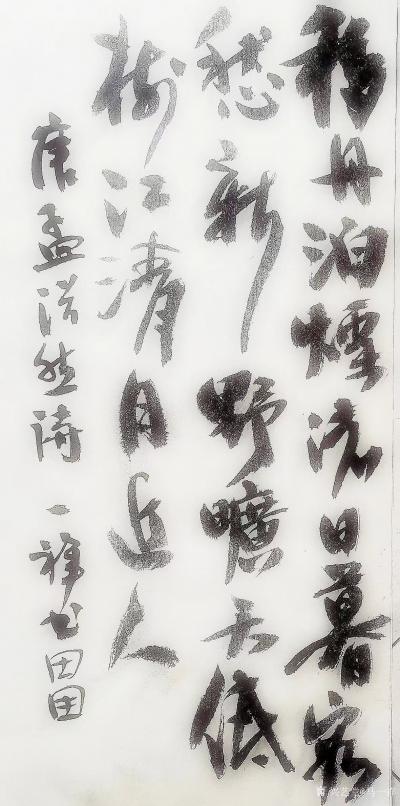 移舟泊煙渚日暮客
愁新野曠天低
樹江清月近人
唐孟浩然詩 一 书